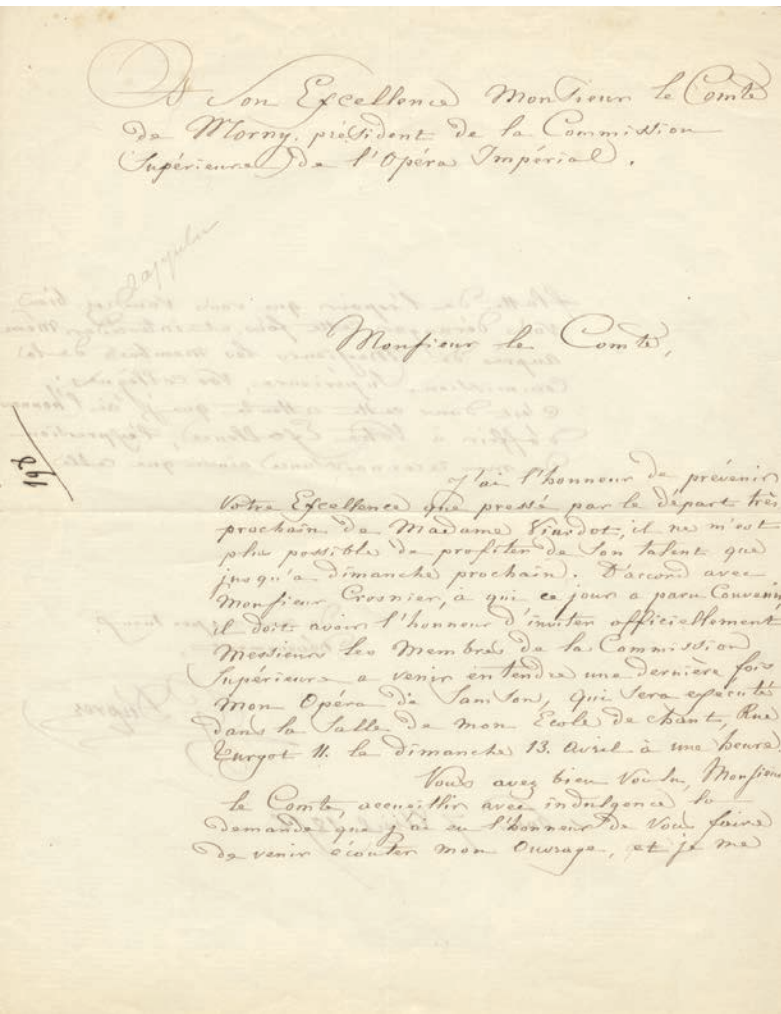 A Son Excellence Monsieur le Comte
de Morny, président de la Commission
Supérieure de l'Opéra Impérial.
Monsieur le Comte,
198
J'ai l'honneur de prévenir
Votre Excellence que pressé par le départ très
prochain de Madame Viardot, il ne m'est
plus possible de profiter de son talent que
jusqu'a dimanche prochain. D'accord avec
Monsieur Crosnier, a qui ce jour a paru Convenir,
il doit avoir l'honneur d'inviter officiellement
Messieurs les Membres de la Commission
Supérieure a venir entendre une dernière fois
mon Opéra de Samson, qui sera exécuté
dans la Salle de mon Ecole de chant, Rue
Turgot 11. le dimanche 13. avril à une heure.
Vous avez bien Voulu, Monsieur
le Comte, accueillir avec indulgence la
demande que j'ai eu l'honneur de Vous faire
de venir écouter mon Ouvrage, et je me